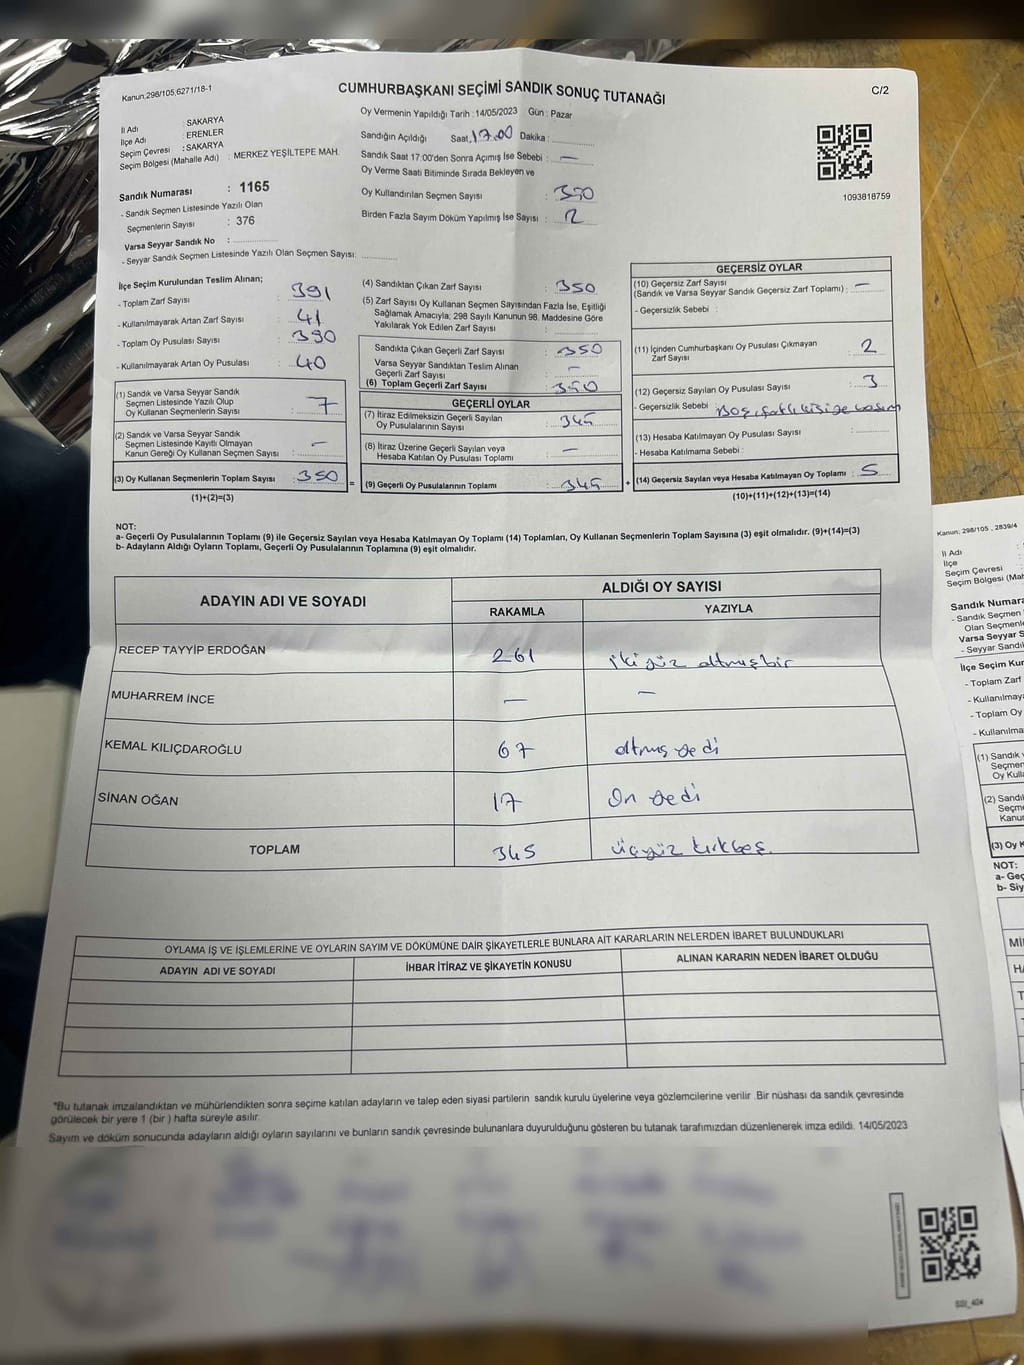 Kanun:298/105,6271/18-1
CUMHURBAŞKANI SEÇİMİ SANDIK SONUÇ TUTANAĞI
C/2
Oy Vermenin Yapıldığı Tarih :14/05/2023 Gün : Pazar
İl Adı : SAKARYA
İlçe Adı : ERENLER
Seçim Çevresi : SAKARYA
Seçim Bölgesi (Mahalle Adı) : MERKEZ YEŞİLTEPE MAH.
Sandık Numarası : 1165
- Sandık Seçmen Listesinde Yazılı Olan
Seçmenlerin Sayısı : 376
Varsa Seyyar Sandık No :
- Seyyar Sandık Seçmen Listesinde Yazılı Olan Seçmen Sayısı:
Sandığın Açıldığı Saat 17.00 Dakika :
Sandık Saat 17:00'den Sonra Açımış İse Sebebi : —
Oy Verme Saati Bitiminde Sırada Bekleyen ve
Oy Kullandırılan Seçmen Sayısı :
Birden Fazla Sayım Döküm Yapılmış İse Sayısı :
1093818759
İlçe Seçim Kurulundan Teslim Alınan;
- Toplam Zarf Sayısı : 391
- Kullanılmayarak Artan Zarf Sayısı : 41
- Toplam Oy Pusulası Sayısı : 390
- Kullanılmayarak Artan Oy Pusulası : 40
(1) Sandık ve Varsa Seyyar Sandık
Seçmen Listesinde Yazılı Olup
Oy Kullanan Seçmenlerin Sayısı : 7
(2) Sandık ve Varsa Seyyar Sandık
Seçmen Listesinde Kayıtlı Olmayan
Kanun Gereği Oy Kullanan Seçmen Sayısı : —
(3) Oy Kullanan Seçmenlerin Toplam Sayısı : 350 =
(1)+(2)=(3)
(4) Sandıktan Çıkan Zarf Sayısı : 350
(5) Zarf Sayısı Oy Kullanan Seçmen Sayısından Fazla İse, Eşitliği
Sağlamak Amacıyla; 298 Sayılı Kanunun 98. Maddesine Göre
Yakılarak Yok Edilen Zarf Sayısı :
Sandıkta Çıkan Geçerli Zarf Sayısı : 350
Varsa Seyyar Sandıktan Teslim Alınan
Geçerli Zarf Sayısı : —
(6) Toplam Geçerli Zarf Sayısı : 350
GEÇERLİ OYLAR
(7) İtiraz Edilmeksizin Geçerli Sayılan
Oy Pusulalarının Sayısı : 345
(8) İtiraz Üzerine Geçerli Sayılan veya
Hesaba Katılan Oy Pusulası Toplamı : —
(9) Geçerli Oy Pusulalarının Toplamı : 345 +
GEÇERSİZ OYLAR
(10) Geçersiz Zarf Sayısı
(Sandık ve Varsa Seyyar Sandık Geçersiz Zarf Toplamı) : —
- Geçersizlik Sebebi :
(11) İçinden Cumhurbaşkanı Oy Pusulası Çıkmayan
Zarf Sayısı : 2
(12) Geçersiz Sayılan Oy Pusulası Sayısı : 3
- Geçersizlik Sebebi : Boş,
(13) Hesaba Katılmayan Oy Pusulası Sayısı :
- Hesaba Katılmama Sebebi :
(14) Geçersiz Sayılan veya Hesaba Katılmayan Oy Toplamı : 5
(10)+(11)+(12)+(13)=(14)
NOT:
a- Geçerli Oy Pusulalarının Toplamı (9) ile Geçersiz Sayılan veya Hesaba Katılmayan Oy Toplamı (14) Toplamları, Oy Kullanan Seçmenlerin Toplam Sayısına (3) eşit olmalıdır. (9)+(14)=(3)
b- Adayların Aldığı Oyların Toplamı, Geçerli Oy Pusulalarının Toplamına (9) eşit olmalıdır.
ADAYIN ADI VE SOYADI
ALDIĞI OY SAYISI
RAKAMLA YAZIYLA
RECEP TAYYİP ERDOĞAN 261 iki yüz altmış bir
MUHARREM İNCE — —
KEMAL KILIÇDAROĞLU 67 altmış yedi
SİNAN OĞAN 17 On yedi
TOPLAM 345 üçyüz kırkbeş.
OYLAMA İŞ VE İŞLEMLERİNE VE OYLARIN SAYIM VE DÖKÜMÜNE DAİR ŞİKAYETLERLE BUNLARA AİT KARARLARIN NELERDEN İBARET BULUNDUKLARI
ADAYIN ADI VE SOYADI İHBAR İTİRAZ VE ŞİKAYETİN KONUSU ALINAN KARARIN NEDEN İBARET OLDUĞU
*Bu tutanak imzalandıktan ve mühürlendikten sonra seçime katılan adayların ve talep eden siyasi partilerin sandık kurulu üyelerine veya gözlemcilerine verilir .Bir nüshası da sandık çevresinde
görülecek bir yere 1 (bir ) hafta süreyle asılır.
Sayım ve döküm sonucunda adayların aldığı oyların sayılarını ve bunların sandık çevresinde bulunanlara duyurulduğunu gösteren bu tutanak tarafımızdan düzenlenerek imza edildi. 14/05/2023
Kanun: 298/105 , 2839/4
İl Adı
İlçe
Seçim Çevresi
Seçim Bölgesi (Mah
Sandık Numara
- Sandık Seçmen
Olan Seçmenle
Varsa Seyyar S
- Seyyar Sandı
İlçe Seçim Kur
- Toplam Zarf
- Kullanılmaya
- Toplam Oy
- Kullanılma
(1) Sandık
Seçmen
Oy Kull
(2) Sandı
Seçme
Kanu
(3) Oy K
NOT:
a- Geç
b- Siy